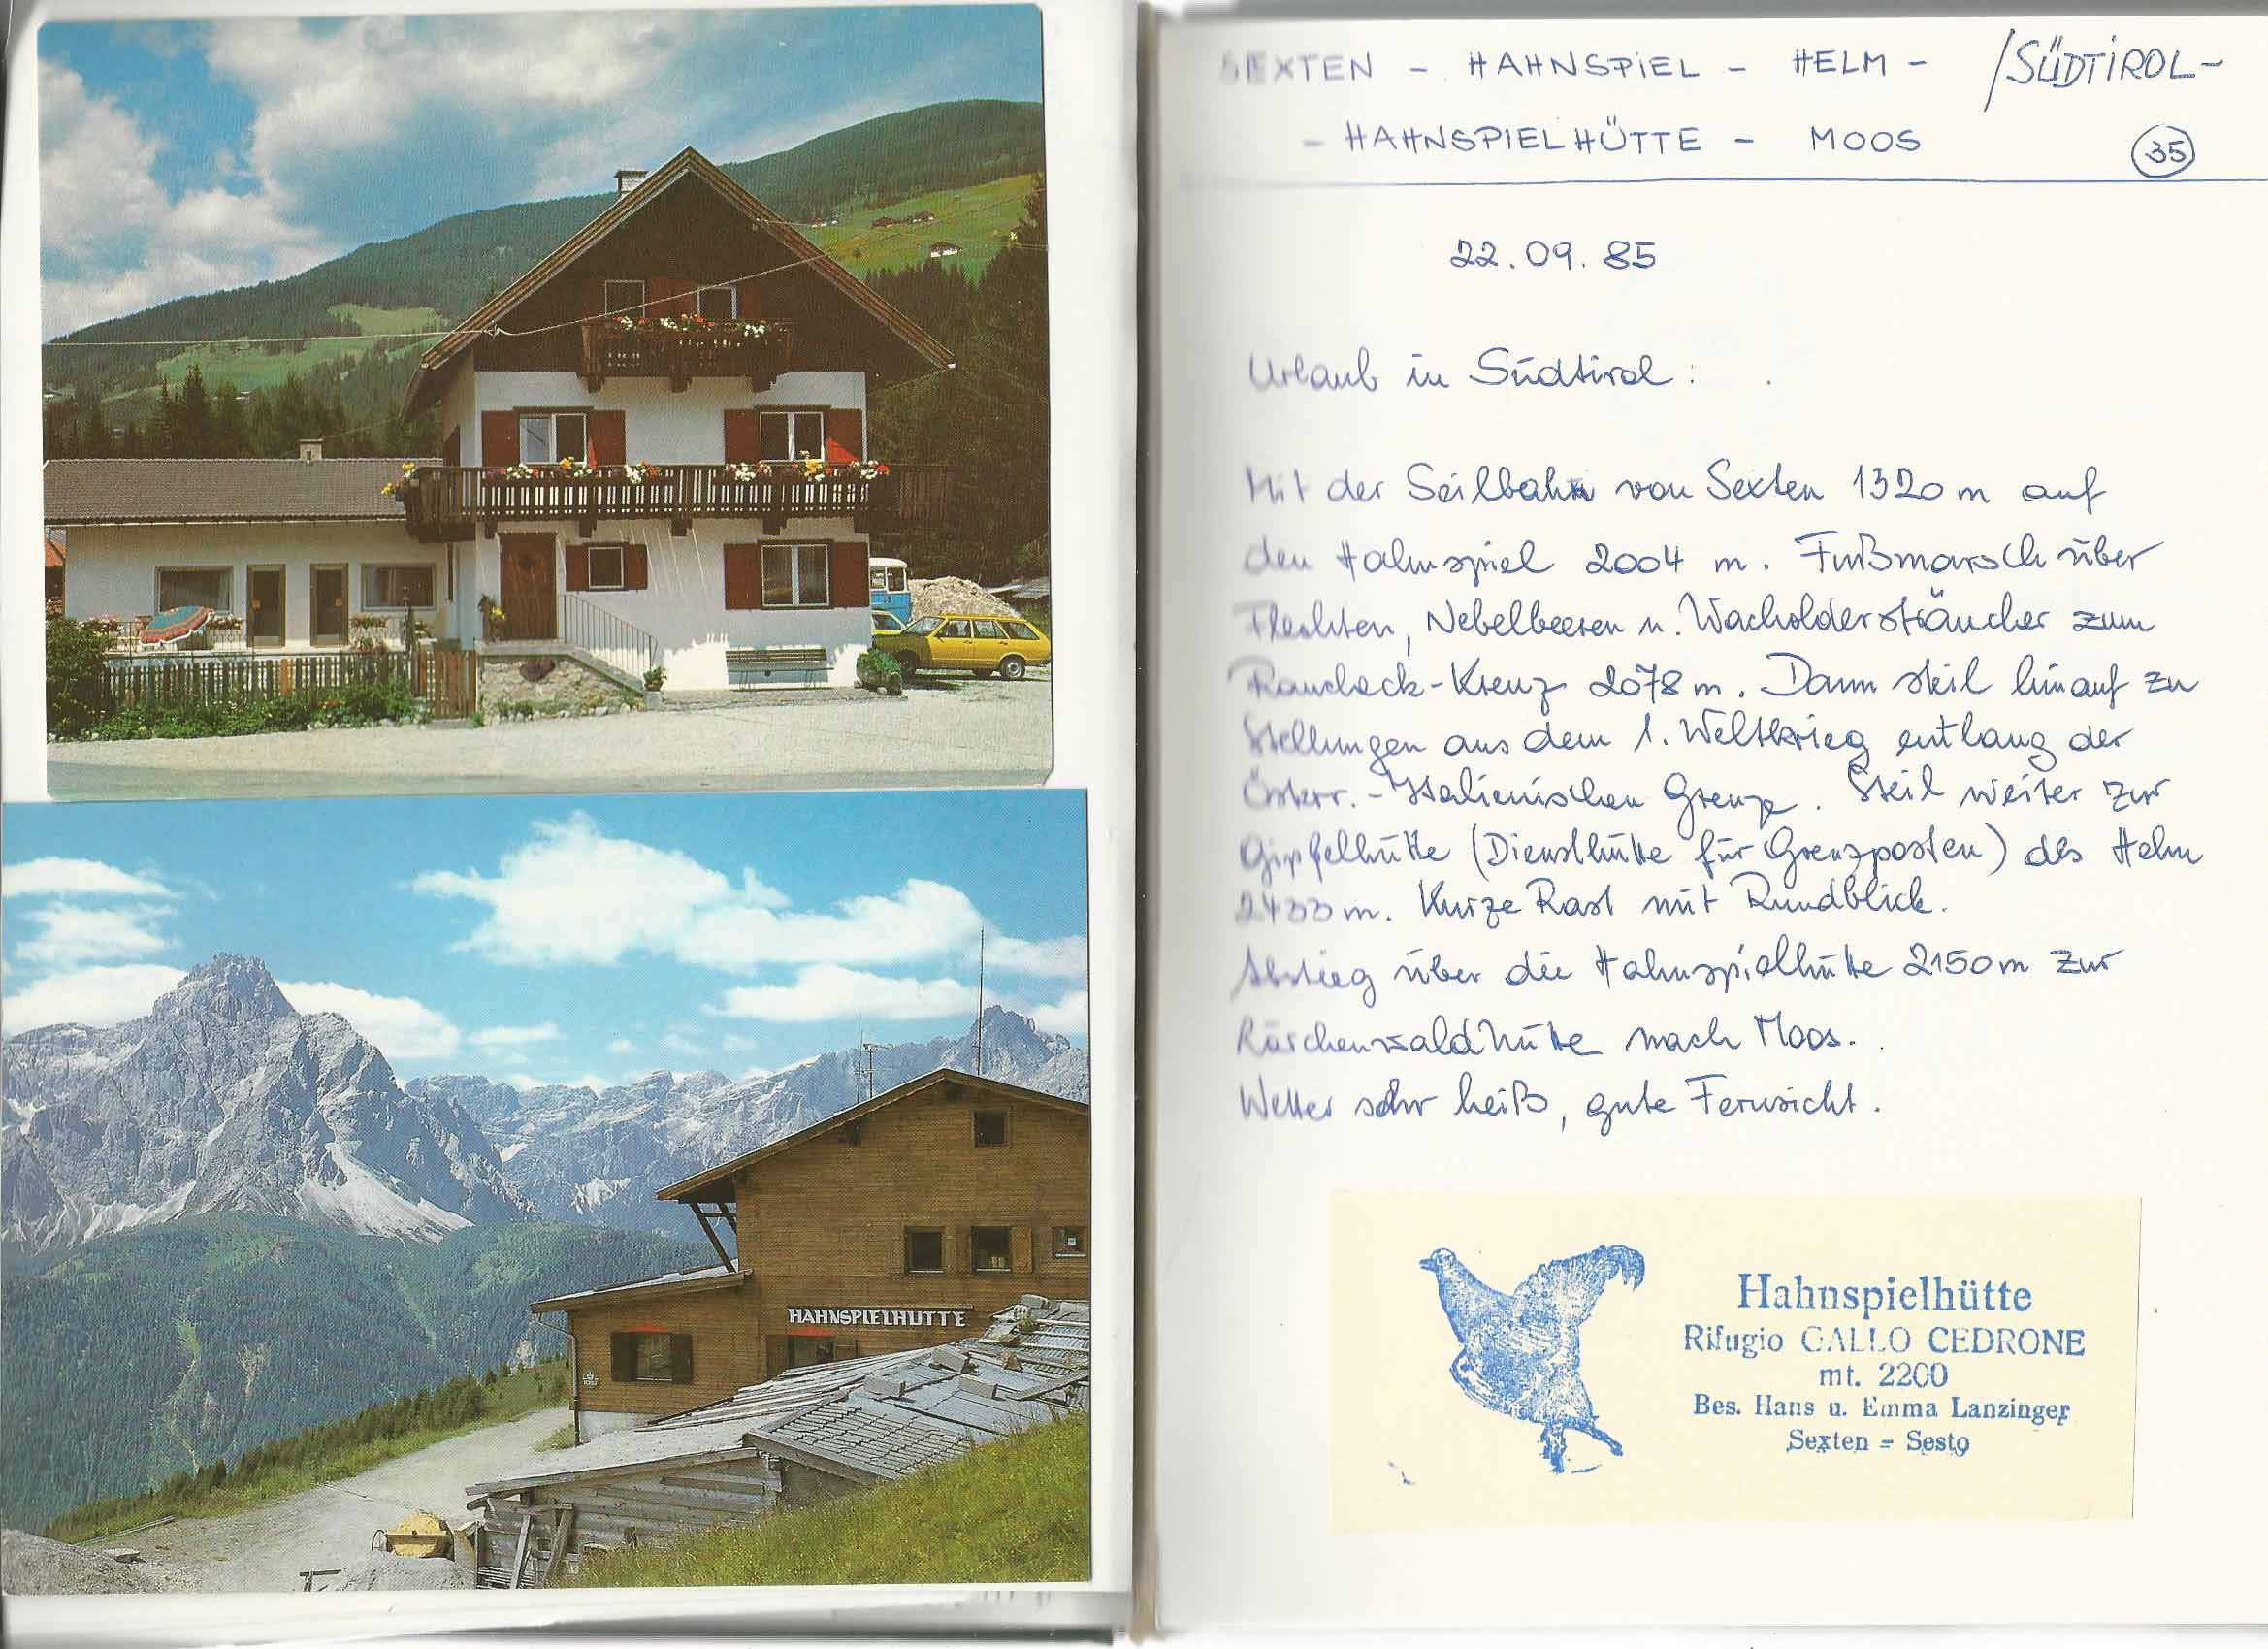 HAHNSPIELHÜTTE
SEXTEN - HAHNSPIEL - HELM - /SÜDTIROL-
- HAHNSPIELHÜTTE - MOOS 35
22.09.85
Urlaub in Südtirol:
Mit der Seilbahn von Sexten 1320 m auf
den Hahnspiel 2004 m. Fußmarsch über
Flechten, Nebelbeeren u. Wacholdersträucher zum
Raucheck-Kreuz 2078 m. Dann steil hinauf zu
Stellungen aus dem 1. Weltkrieg entlang der
Österr.-Italienischen Grenze. Steil weiter zur
Gipfelhütte (Diensthütte für Grenzposten) des Helm
2433 m. Kurze Rast mit Rundblick.
Abstieg über die Hahnspielhütte 2150 m zur
Lärchenwaldhütte nach Moos.
Wetter sehr heiß, gute Fernsicht.
Hahnspielhütte
Rifugio GALLO CEDRONE
mt. 2200
Bes. Hans u. Emma Lanzinger
Sexten - Sesto